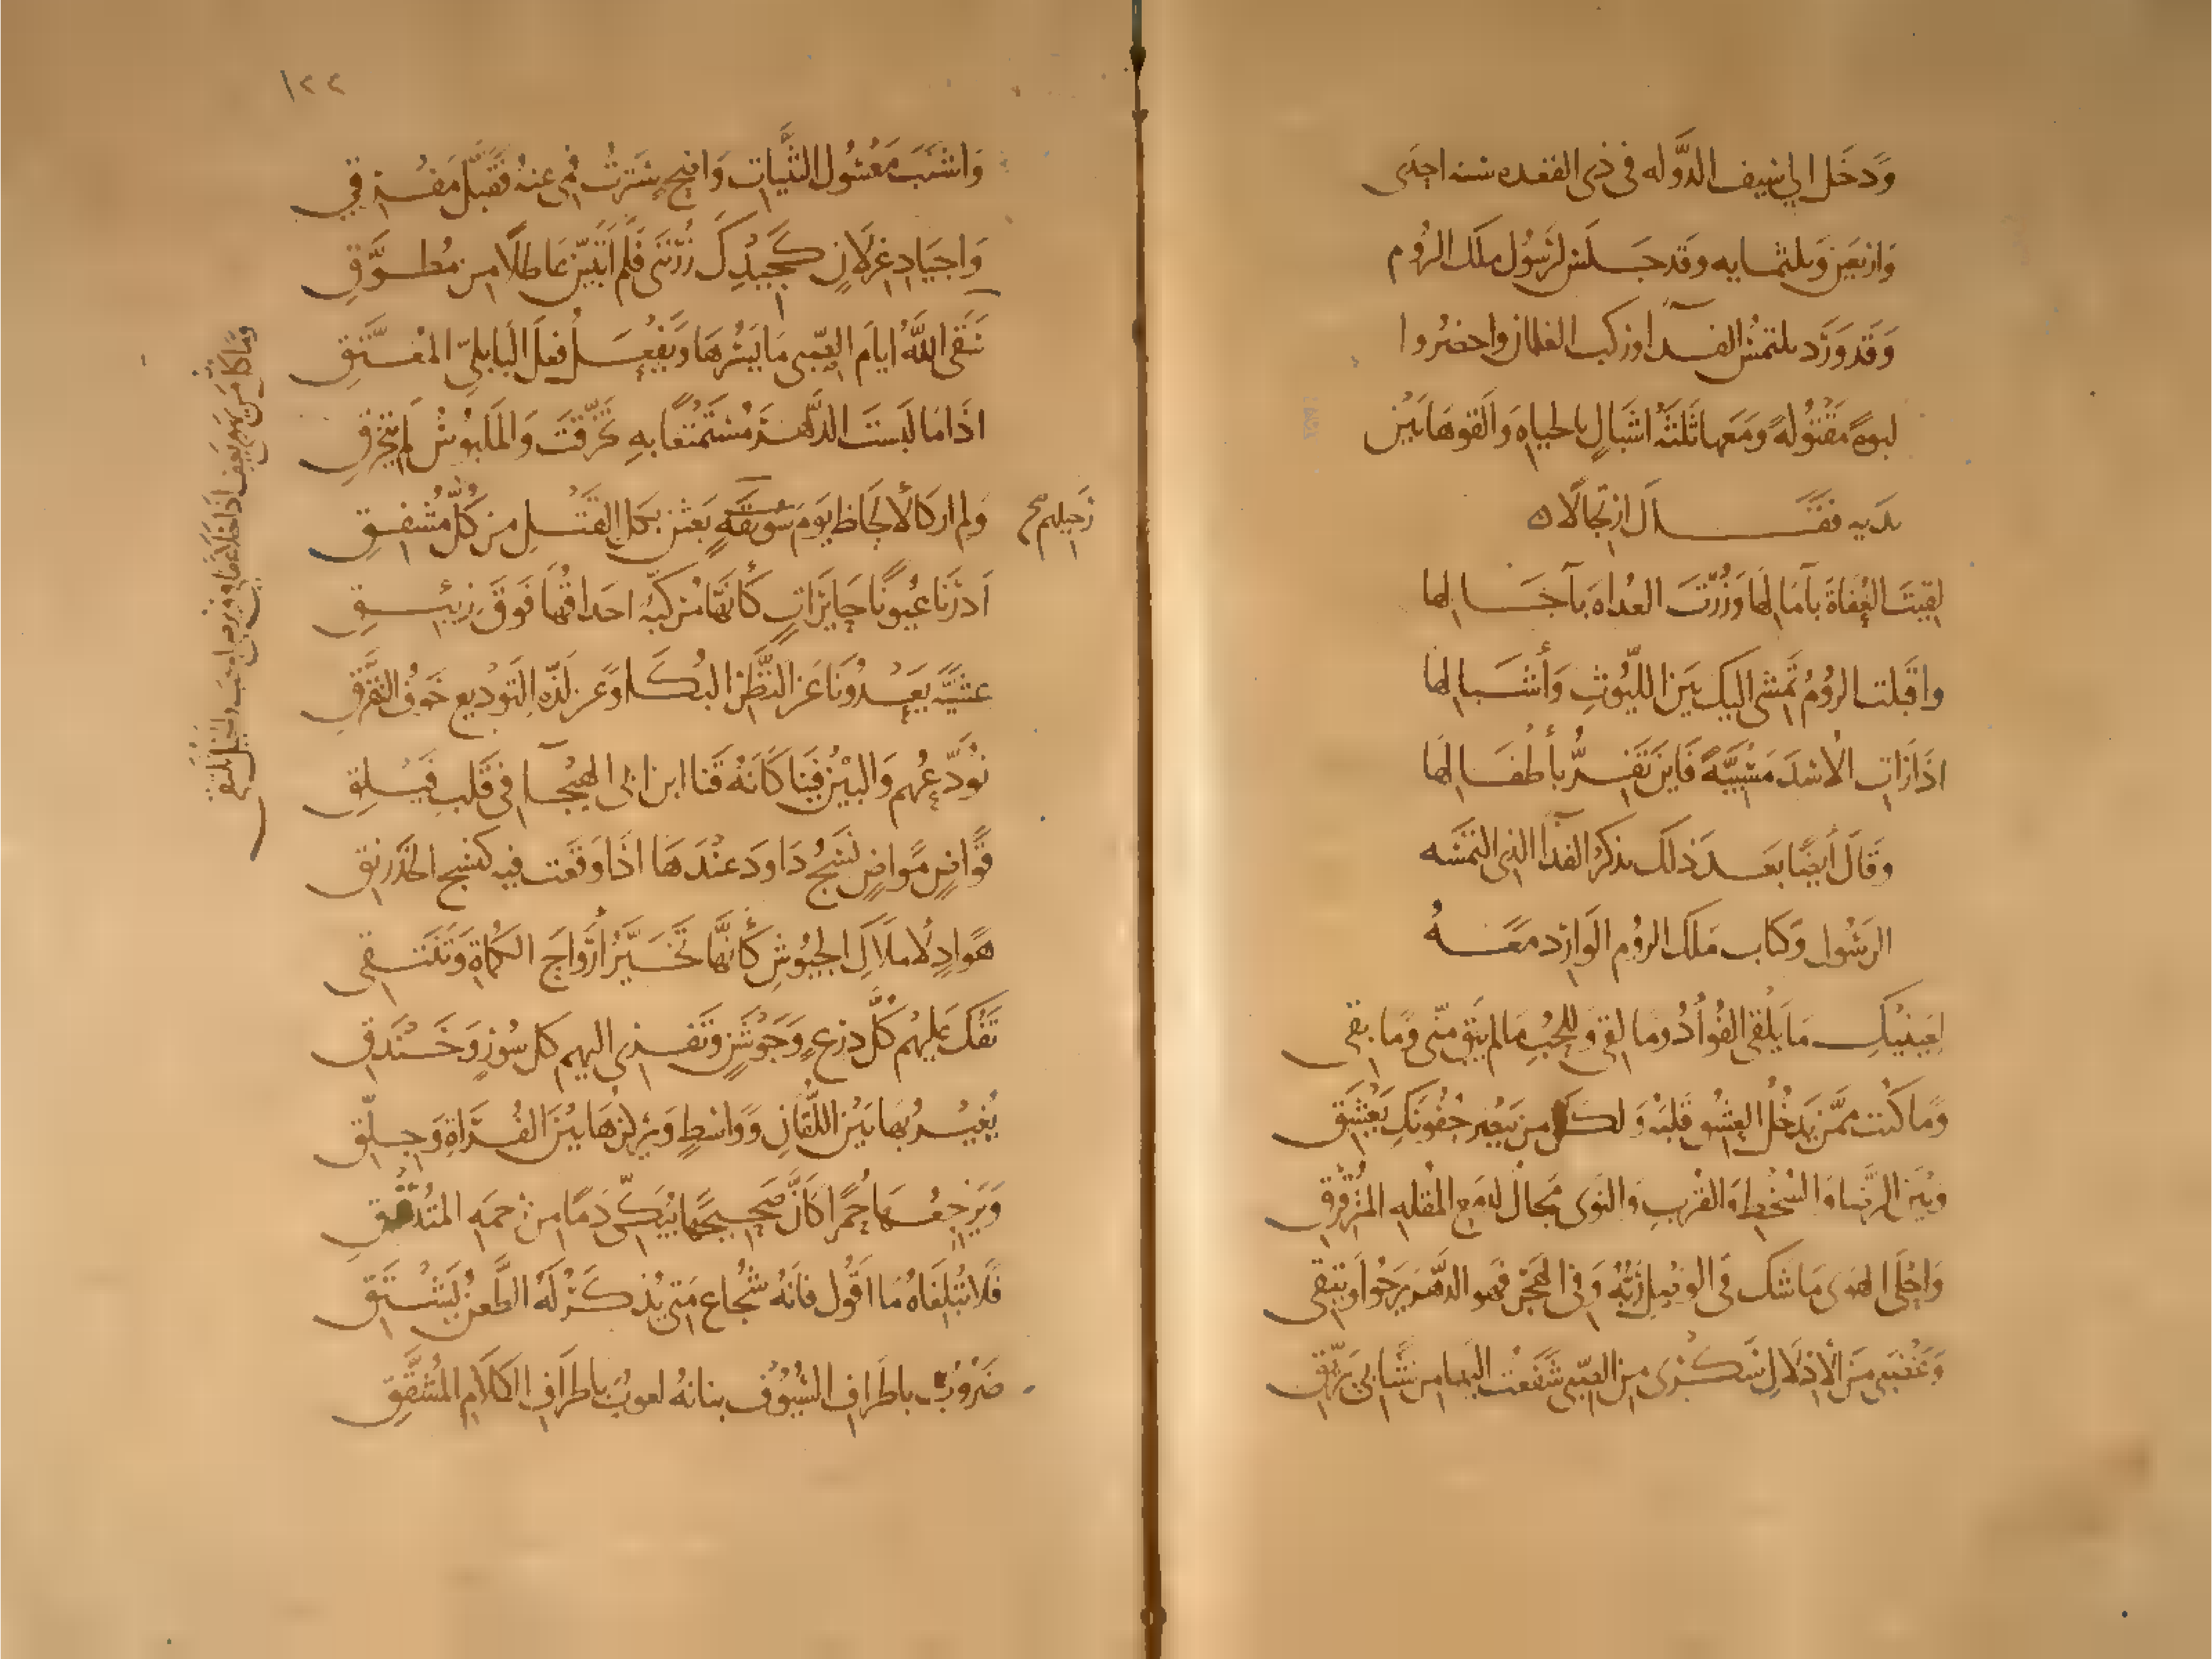 وَدَخَل الى سَيف الدَّوله فى ذى القعده سنه احدى
وَاربَعين وثلثمايه وقد جَلسَ لرَسُول ملك الرُوم
وَقد وَرَد يلتمسُ الفدآ وركب الغلمان واحضروا
لبوةً مَقتُولةً ومَعها ثلثَةُ اشبَالٍ بالحياه وَالقوهَا بَيْن
يدَيه فقَال ارتجالًا ه
لقِيتَ العُفَاةَ بآمَالِهَا وَزُرتَ العدَاهَ بآجَالها
واقبَلت الرُومُ تمشى اليك بَين الليُوثِ وَأشبَالِها
اذَا رَاتِ الاُسْدَ مَسْبِيَّةً فَاين تَفِرُّ بأطفَالهَا
وقَالَ أيضًا بَعدَ ذلكَ يذكرُ الفدآ الذى التمسَه
الرسُول وَكتاب مَلك الرُوم الوَارد معَهُ
لِعَينَيْكِ مَا يَلْقَى الفُوأدُ وما لقى وللحُبِ مَا لم يَبق منّى وَما بقى
وَما كنت ممَّن يَدخُلُ العِشْقُ قلبَهُ وَلكن من يُبصِر جُفُونَكِ يَعْشَق
وبَيْن الرِّضَا وَالسُخْطِ وَالقُربِ وَالنوَى مَجَالٌ لدَمع المقُله المُتَرَقْرِقِ
وَاحْلَى الهوَى مَا شك فى الوَصْلِ رَبُّهُ وَفى الهَجْر فهو الدَّهْرَ يَرجُوا وَيتقى
وَغَضْبَى مِنَ الأدْلَالِ سَكْرَى مِن الصِّبى شَفَعتُ اليهَا من شَبَابى برَيِّق
١٢٢
وَاشنَبَ مَعْسُول الثَّنيَّات وَاضحٍ سَتَرتُ فمِى عنهُ فقَبَّل مَفْرقِي
وَاجيَادِ غزلَانٍ كجيدِكِ زُرْنَنى فَلَم اَتَبَيّن عَاطلًا من مُطوَّقِ
سَقَى اللهُ ايام الصّبى مَا يَسُرهَا وَيَفْعَلُ فعلَ البَابِليّ المُعَتَّقِ
اذَا مَا لَبستَ الدَّهْرَ مُستَمتعًا بهِ تَخَرَّقتَ وَالمَلبُوسُ لَم يتخَرَّقِ
ولم ار كالألحَاظ يَومَ رَحِيلِهم بَعَثن بكل القَتلِ من كُلّ مُشْفِقِ
اَدَرنَ عُيونًا حَايرَاتٍ كأنَّها مُرَكبّةٌ احدَاقُهَا فَوقَ زِيبَقِ
عشيَّة يَعدُونَا عَن النَّظَر البُكَا وَعن لَذّهِ التَودِيع خَوفُ التفَرُّقِ
نُودّعُهم وَالبَيْنُ فينَا كَأنهُ قَنا ابن ابى الهيْجَا فى قَلب فَيْلقِ
قَوَاضٍ مَوَاضٍ نَسْجُ دَاودَ عنْدَهَا اذَا وَقعَت فيه كنسْج الخَدَرْنَق
هَوَادٍ لاملَاكِ الجيُوشِ كأنَّها تَخَيَّرُ ارْوَاحَ الكُمَاةِ وَتَنْتَقى
تَفُك عَليهم كُلَّ دِرعٍ وَجَوْشَنٍ وَتَفرى اليهم كل سُورٍ وَخَنْدقِ
يُغيرُ بهَا بَيْن اللُّقَانِ وَوَاسطٍ وَيرْكزُهَا بَيْنَ الفُرَاةِ وَجِلّقِ
وَيَرجِعُها حُمرًا كانَّ صَحِيحَهَا يُبَكّى دَمًا من رَحمَهِ المتُدَقّقِ
فَلا تُبْلِغَاهُ مَا اَقُول فانَهُ شُجَاع مَتى يُذكَرْ لَهُ الطَّعنُ يَشْتَقِ
ضَرُوبٌ باطرَافِ السُيُوفِ بنَانهُ لعوبٌ باطرَافِ الكَلَامِ المُشقَّقِ